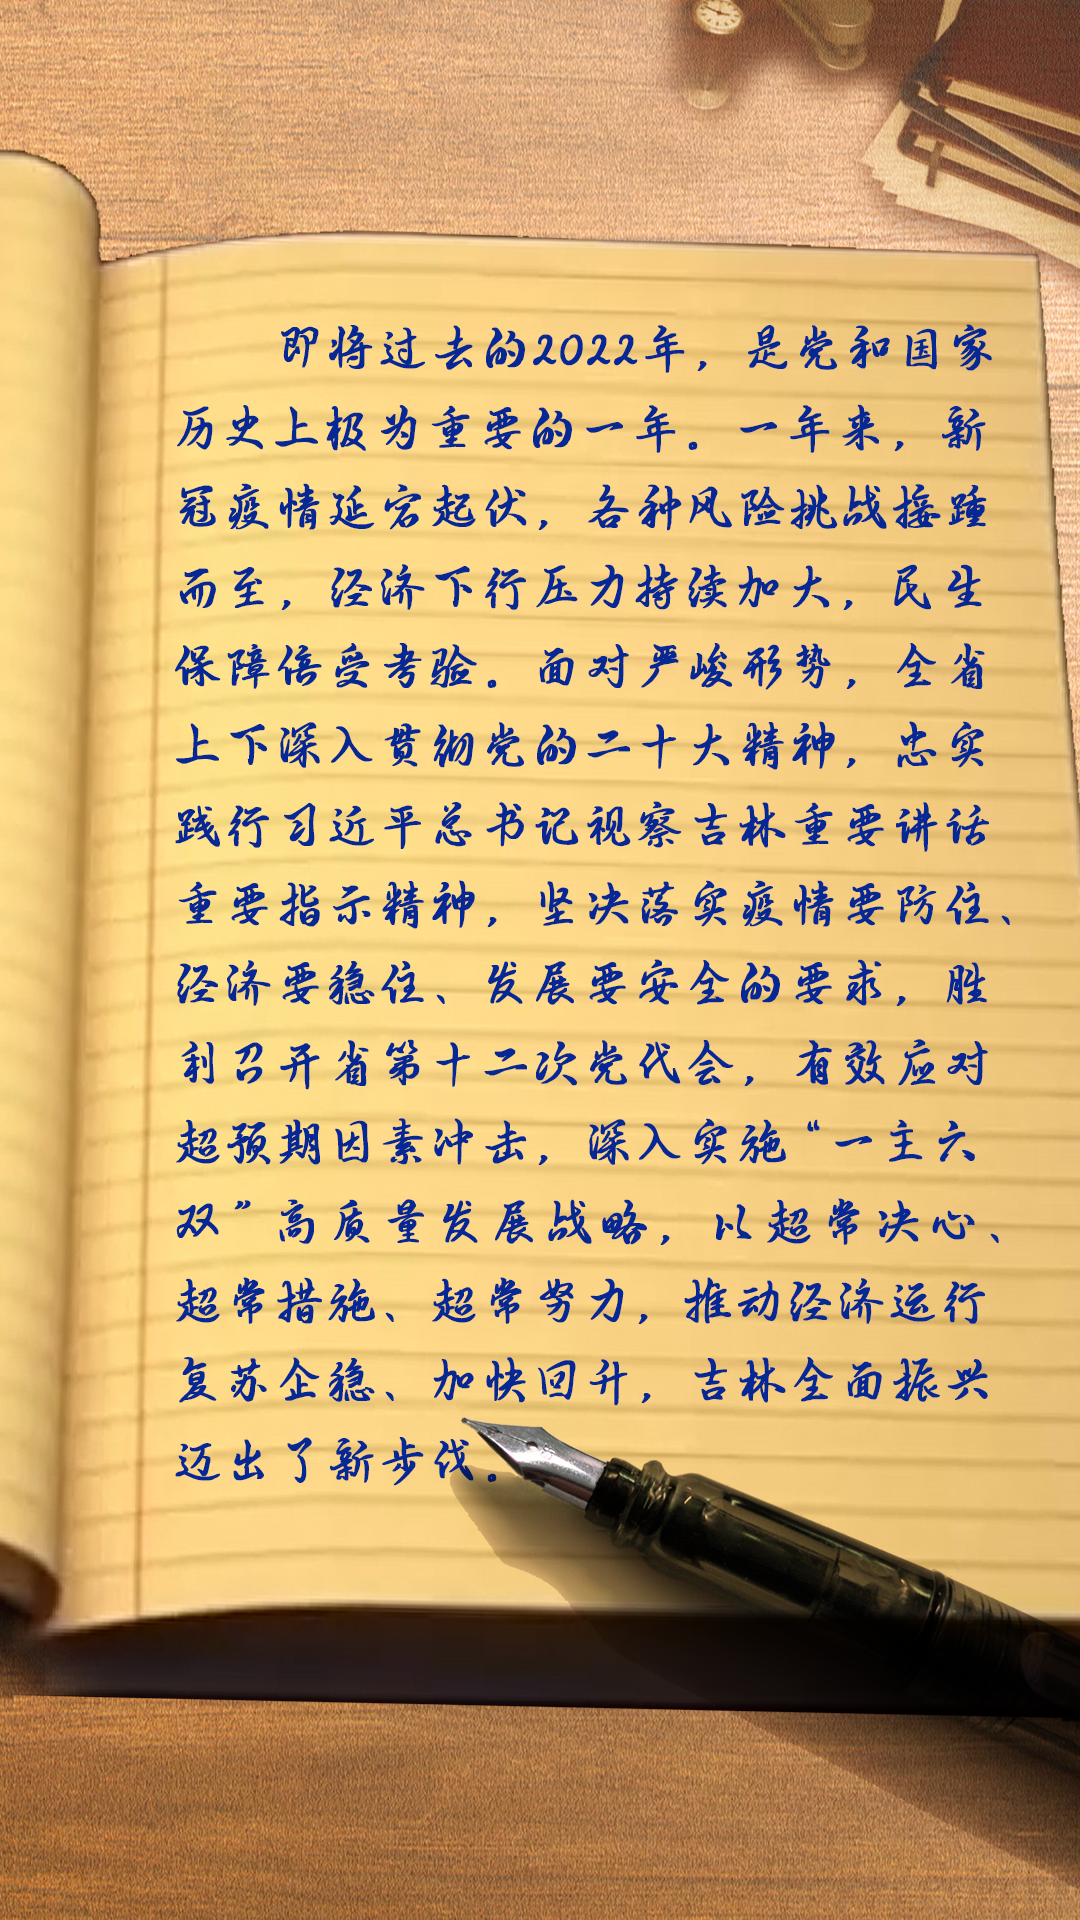 即将过去的2022年，是党和国家
历史上极为重要的一年。一年来，新
冠疫情延宕起伏，各种风险挑战接踵
而至，经济下行压力持续加大，民生
保障倍受考验。面对严峻形势，全省
上下深入贯彻党的二十大精神，忠实
践行习近平总书记视察吉林重要讲话
重要指示精神，坚决落实疫情要防住、
经济要稳住、发展要安全的要求，胜
利召开省第十二次党代会，有效应对
超预期因素冲击，深入实施“一主六
双”高质量发展战略，以超常决心、
超常措施、超常努力，推动经济运行
复苏企稳、加快回升，吉林全面振兴
迈出了新步伐。